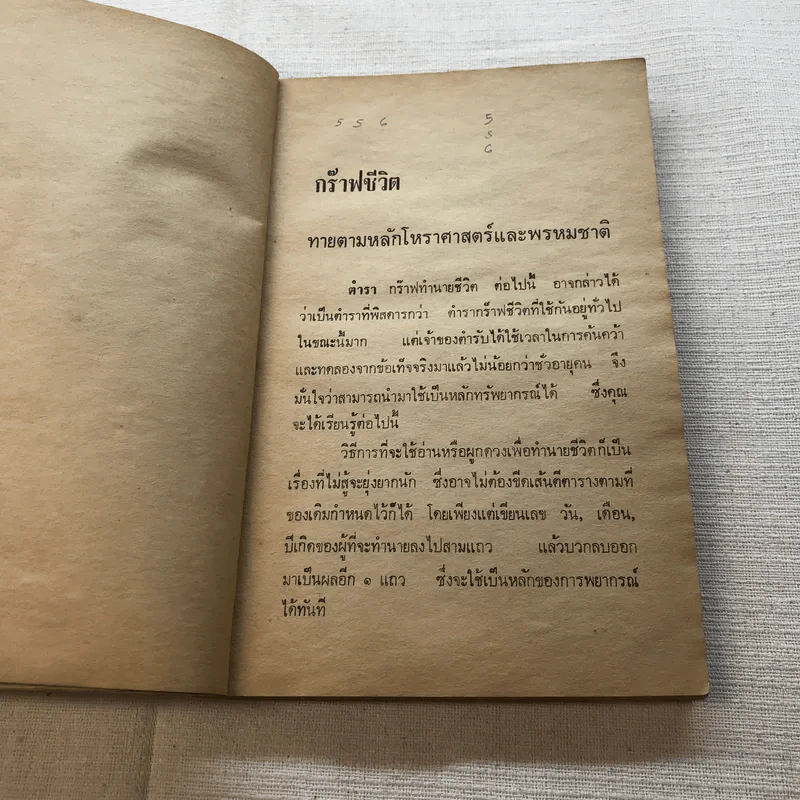 5 5 6
5
5
6
กร๊าฟชีวิต
ทายตามหลักโหราศาสตร์และพรหมชาติ
ตำรา กร๊าฟทำนายชีวิต ต่อไปนี้ อาจกล่าวได้
ว่าเป็นตำราที่พิสดารกว่า ตำรากร๊าฟชีวิตที่ใช้กันอยู่ทั่วไป
ในขณะนี้มาก แต่เจ้าของตำรับได้ใช้เวลาในการค้นคว้า
และทดลองจากข้อเท็จจริงมาแล้วไม่น้อยกว่าชั่วอายุคน จึง
มั่นใจว่าสามารถนำมาใช้เป็นหลักทรัพยากรณ์ได้ ซึ่งคุณ
จะได้เรียนรู้ต่อไปนี้
วิธีการที่จะใช้อ่านหรือผูกดวงเพื่อทำนายชีวิตก็เป็น
เรื่องที่ไม่สู้จะยุ่งยากนัก ซึ่งอาจไม่ต้องขีดเส้นตีตารางตามที่
ของเดิมกำหนดไว้ก็ได้ โดยเพียงแต่เขียนเลข วัน, เดือน,
ปีเกิดของผู้ที่จะทำนายลงไปสามแถว แล้วบวกลบออก
มาเป็นผลอีก ๑ แถว ซึ่งจะใช้เป็นหลักของการพยากรณ์
ได้ทันที